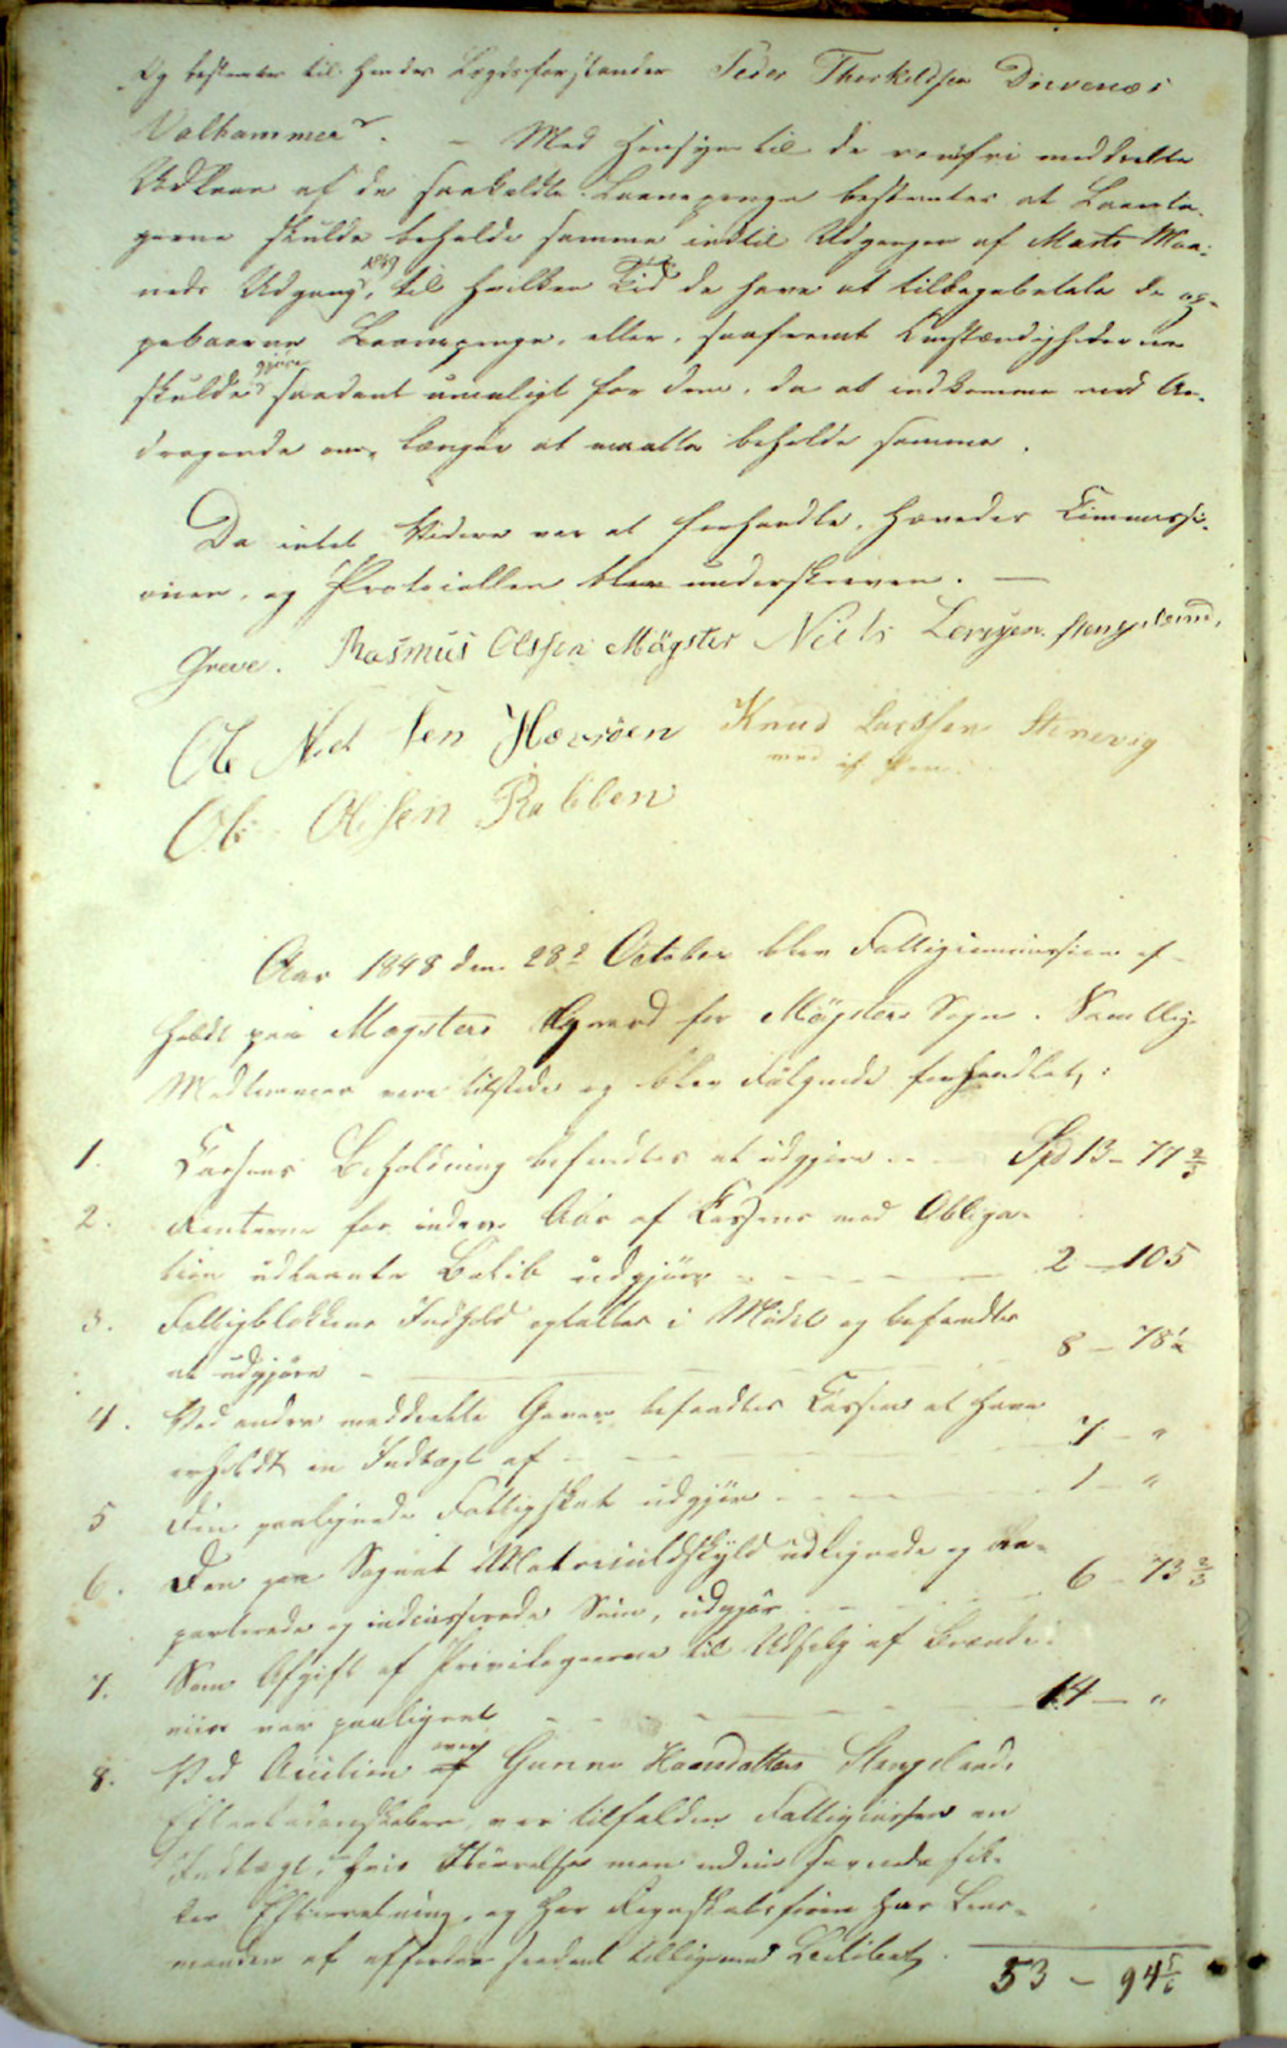 og bestemtes til hendes Lægdsforstander Peder Thorkildsen Drivenæs
Valhammer. – Med Hensyn til de rentfri meddeelte
Udlaan af de saakaldte Laanepenge bestemtes at Laanta-
gerne skulde beholde samme indtil Udgangen af Marts Maa-
neds Udgang 1849, til hvilken Tid de have at tilbagebetale de op-
pebaarne Laanepenge, eller, saafremt Omstændighederne
skulde gjøre saadant umuligt for dem, da at indkomme med An-
dragende om længer at maatte beholde samme.
Da intet Videre var at forhandle, hævedes Commissi-
onen, og Protocollen blev underskreven. —
Greve. Rasmus Olssen Mögster Niels Larssen Stangeland,
Ole Niel sen Hævröen Knud Larssen Stenevig
med if. Pen.
Ole Olesen Rabben
Aar 1848 den 28de October blev Fattigcommission af-
holdt paa Mögsters Ggaard for Mögsters Sogn. Samtlige
Medlemmer vare tilstede og blev Fölgende forhandlet:
1. Cassens Beholdning befandtes at udgjøre .. – Spd 13 – 77 2/3
2. Renterne for indev. Aar af Cassens mod Obliga-
tion udlaante Beløb udgjøre – – – – 2 – 105
3. Fattigblokkens Indhold optaltes i Mödet og befandtes
at udgjøre – 8 – 78 1/2
4. Ved andre meddeelte Gaver befandtes Cassen at have
erholdt en Indtægt af – – – 7 – "
5 Den paalignede Fattigskat udgjör – – – 1 – "
6. Den paa Sognets Matrikulskyld udlignede og re-
parterede og indcasserede Sum, udgjør – – – 6 – 73 2/3
7. Som Afgift af Privilegierne til Udsalg af Brænde-
viin var paalignet – – – 14 – "
8. Ved Auction over Gunne Hansdatters Stangelands
Efterladenskaber, var tilfalden Fattigcassen en
Indtægt, hvis Störrelse man endnu savnede sik-
ker Efterretning, og har Regnskabsføreren hos Lens-
manden at affordre saadant tilligemed Beløbet.
53 – 94 5/6